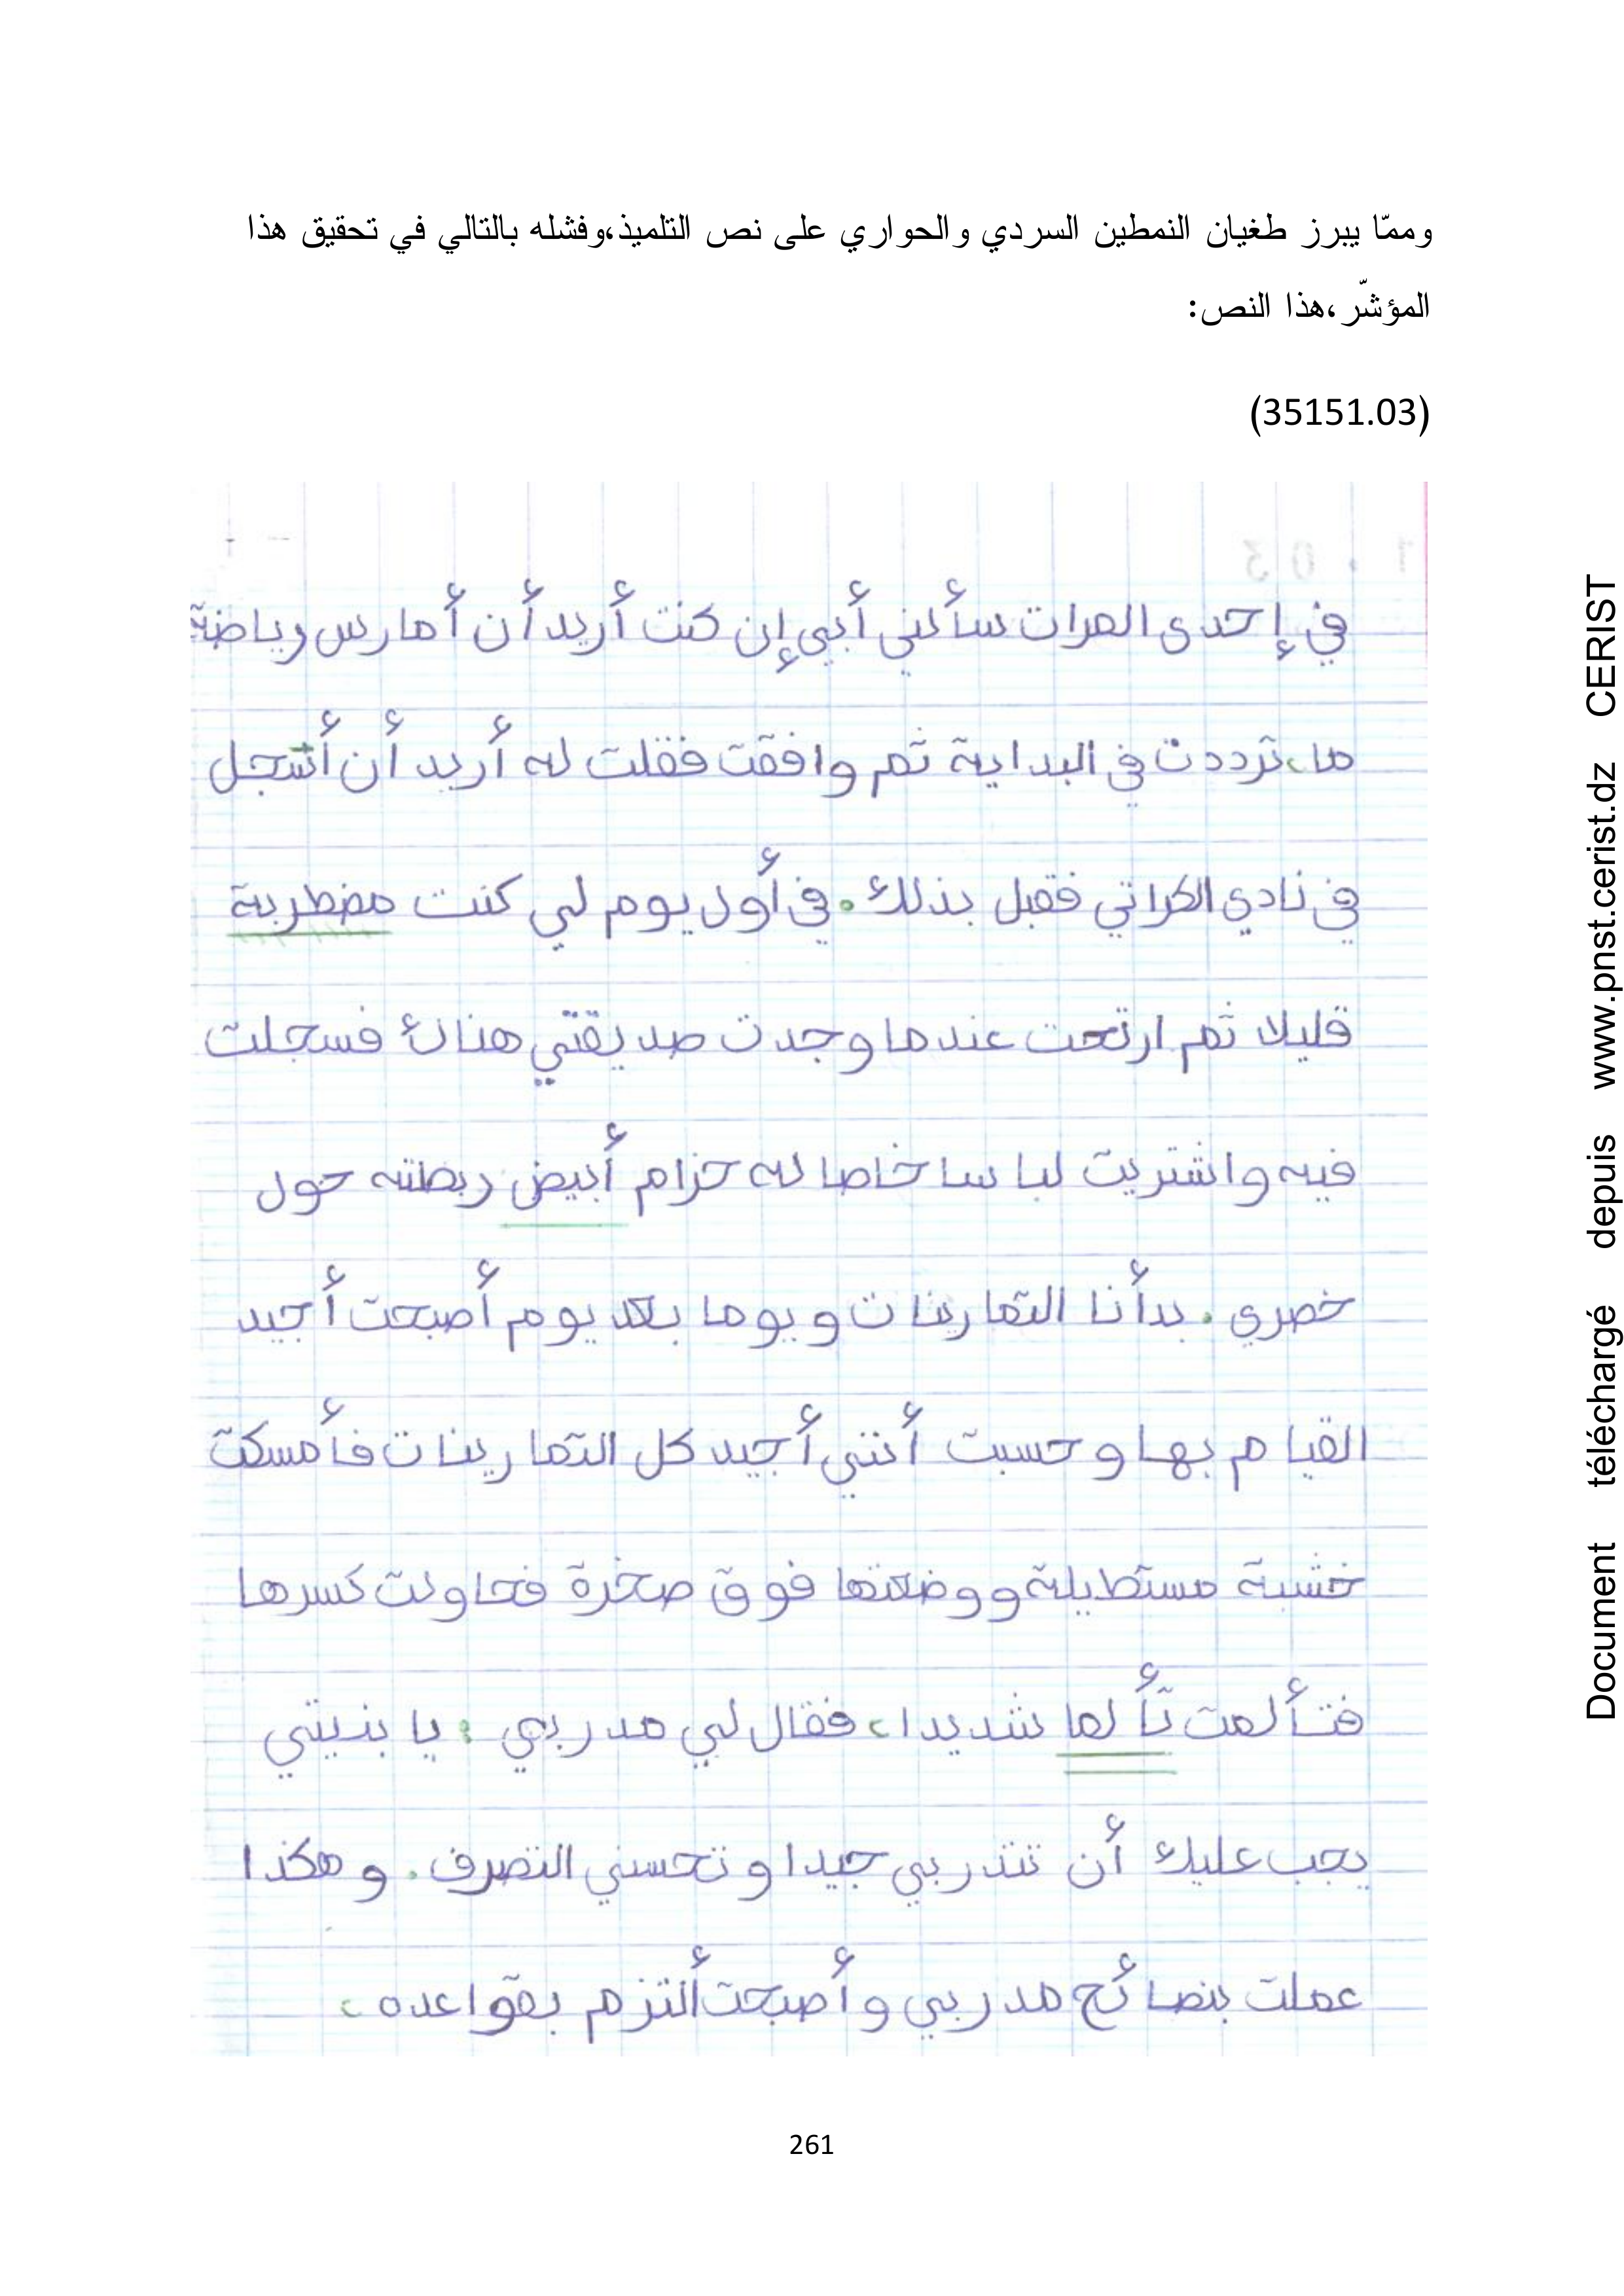 وممّا يبرز طغيان النمطين السردي والحواري على نص التلميذ،وفشله بالتالي في تحقيق هذا
المؤشّر،هذا النص:
(35151.03)
1.03
في إحدى المرات سألني أبي إن كنت أريد أن أمارس رياضة
ما، ترددت في البداية ثم وافقت فقلت له أريد أن أسجل
في نادي الكراتي فقبل بذلك. في أول يوم لي كنت مضطربة
قليلا ثم ارتحت عندما وجدت صديقتي هناك فسجلت
فيه واشتريت لباسا خاصا له حزام أبيض ربطته حول
خصري. بدأنا التمارينات ويوما بعد يوم أصبحت أجيد
القيام بها وحسبت أنني أجيد كل التمارينات فأمسكت
خشبة مستطيلة ووضعتها فوق صخرة فحاولت كسرها
فتألمت تألما شديدا، فقال لي مدربي: يا بنيتي
يجب عليك أن تتدربي جيدا وتحسني التصرف. وهكذا
عملت بنصائح مدربي وأصبحت ألتزم بقواعده،
261
Document téléchargé depuis www.pnst.cerist.dz CERIST